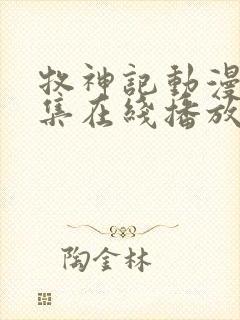 牧神記動漫
集在綫播放
陶金林